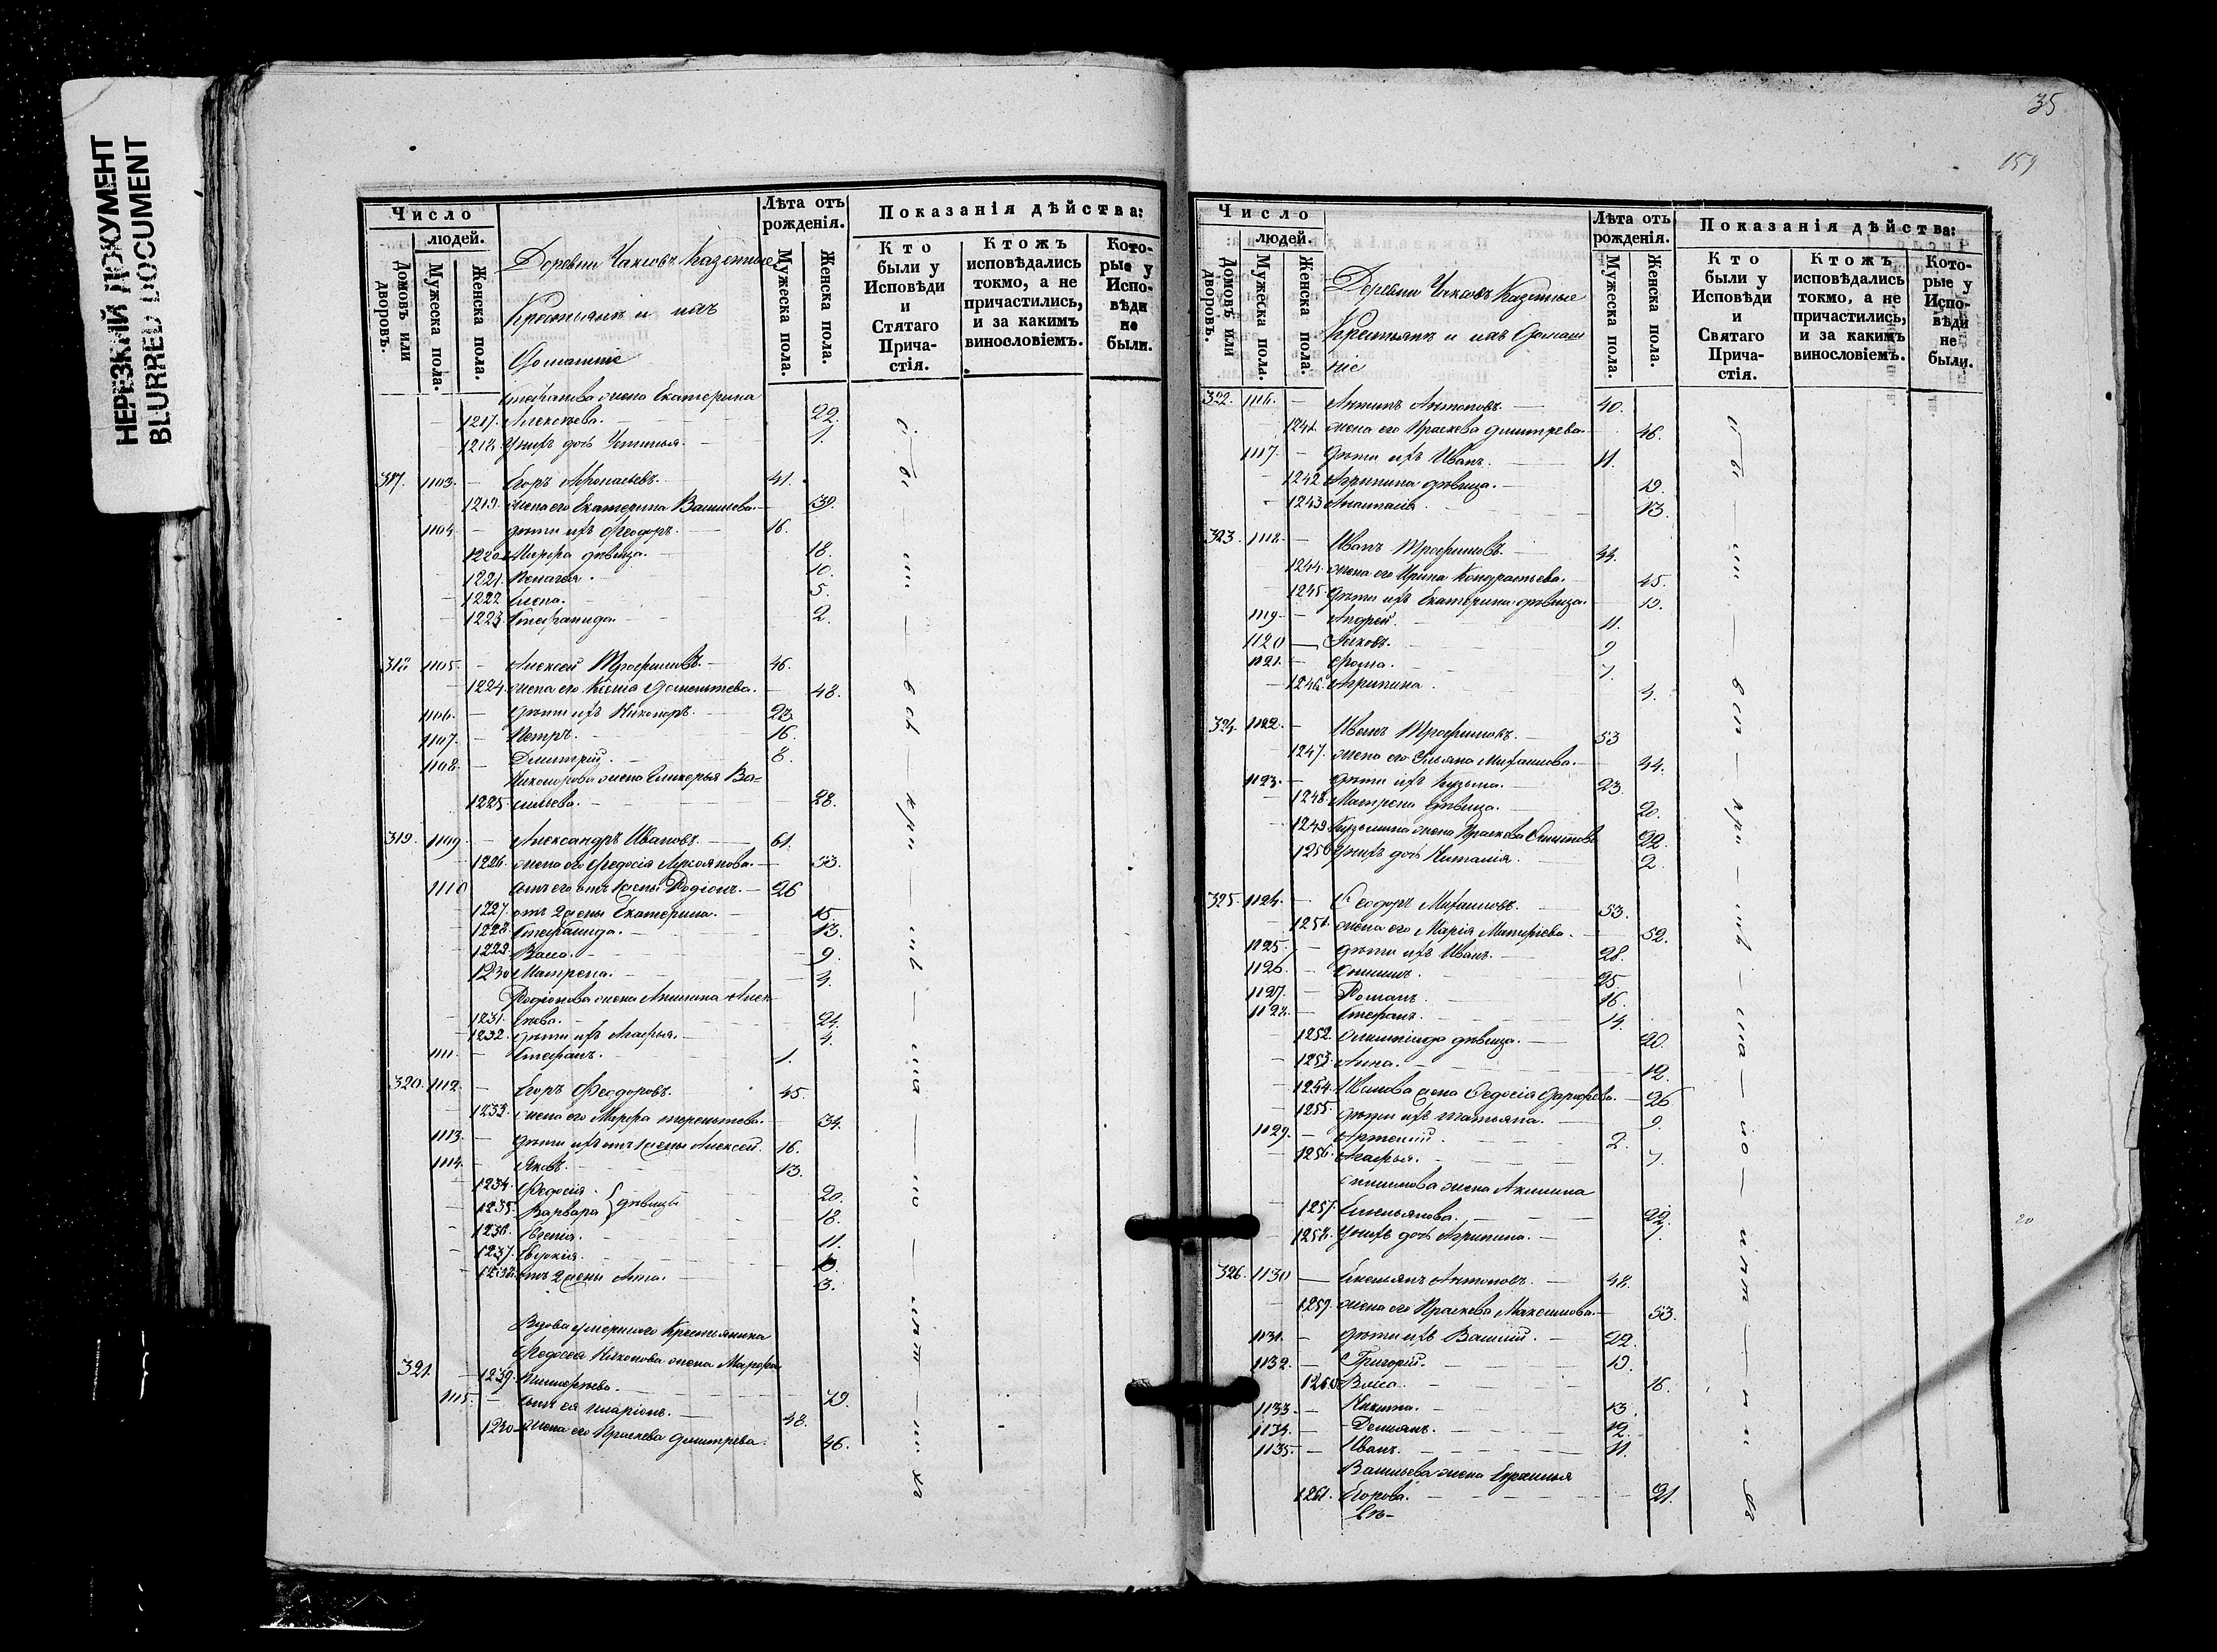 НЕРЕЗКИЙ ДОКУМЕНТ
BLURRED DOCUMENT
Число
людей.
Домовъ или дворовъ.
Мужеска пола.
Женска пола.
Деревни Чаковъ Казенные
Крестьяне и ихъ
Домашніе
Лѣта отъ рожденія.
Мужеска пола.
Женска пола.
Показанія дѣйства:
Кто были у Исповѣди и Стятаго Прича-стія.
Ктожъ исповѣдались токмо, а не причастились, и за какимъ винословіемъ.
Кото-рые у Испо-вѣди не были.
Стефанова жена Екатерина
1217. Алексѣева. 22.
1218. У нихъ дочь Устинья. 1.
317. 1103. Егоръ Афонасьевъ. 41.
1219. жена его Екатерина Васильева. 39.
1104 дѣти ихъ Феодоръ. 16.
1220 Марфа дѣвица. 18.
1221. Пелагея. 10.
1222 Елена. 5.
1223. Стефанида. 2.
318 1105. Алексей Трофимовъ. 46.
1224. жена его Ксенія Дементьева. 48.
1106. дѣти ихъ Никоноръ. 23.
1107. Петръ. 16.
1108. Дмитрий. 8.
Никонорова жена Гликерья Ва-
1225. сильева. 28.
319. 1109. Александръ Ивановъ. 61.
1226. жена его Федосія Лукоянова. 53.
1110 сынъ его отъ 1 жены Родіонъ. 26
1227. отъ 2 жены Екатерина. 15.
1228. Стефанида. 13.
1229. Васса. 9.
1230 Матрена. 3.
Родіонова жена Акилина Алек-
1231. сѣева. 24.
1232. дѣти ихъ Агафья. 4.
1111. Стефанъ. 1.
320. 1112. Егоръ Феодоровъ. 45.
1233. жена его Марфа терентьева. 34.
1113. дѣти ихъ отъ 1 жены Алексей. 16.
1114. Яковъ. 13.
1234. Федосія 20.
1235. Варвара } дѣвицы 18.
1236. Евгенія. 11.
1237. Евдокія.
1238. отъ 2 жены Анна. 3.
Вдова умершаго Крестьянина
Федосея Никонова жена Марфа
321. 1239.
1115. сынъ ея иларіонъ. 48.
1230 жена его Праскева дмитрева. 46.
35
159
Число
людей.
Домовъ или дворовъ.
Мужеска пола.
Женска пола.
Деревни Чаковъ Казенные
Крестьяне и ихъ Домаш
ніе
Лѣта отъ рожденія.
Мужеска пола.
Женска пола.
Показанія дѣйства:
Кто были у Исповѣди и Святаго Прича-стія.
Ктожъ исповѣдались токмо, а не причастились, и за какимъ винословіемъ.
Кото-рые у Испо-вѣди не были.
322. 1116. Антипъ Антоновъ. 40.
1241. жена его Праскева дмитрева. 46.
1117. дѣти ихъ Иванъ. 11.
1242 Агрипина дѣвица. 19.
1243 Анастасія. 13.
323. 1118. Иванъ Трофимовъ. 44.
1244. жена его Ирина Кондратьева. 45.
1245. дѣти ихъ Екатерина дѣвица. 19.
1119 Андрей. 11.
1120 Яковъ. 9
1121. Фома. 7.
1246. Агрипина. 3.
324. 1122. Иванъ Трофимовъ. 53
1247. жена его Ульяна Михаилова. 44.
1123. дѣти ихъ Кузьма. 23.
1248. Матрена дѣвица. 20.
1249 Кузьмина жена Праскева 22.
1250 У нихъ дочь Наталія. 2.
325. 1124. Феодоръ Михаиловъ. 53.
1251. жена его Марія Матфіева. 52.
1125. дѣти ихъ Иванъ. 28.
1126. Онисимъ. 25.
1127. Романъ. 16.
1128. Стефанъ. 14.
1252. Олимпіада дѣвица. 20.
1253. Анна. 12.
1254. Иванова жена Федосія 26
1255. дѣти ихъ татьяна. 9.
1129. Артемій. 2.
1256. Агафья. 7.
Онисимова жена Акилина
1257. Емельянова. 22.
1258. У нихъ дочь Агрипина. 1.
326. 1130 Емельянъ Антоновъ. 48.
1259. жена его Праскева Максимова. 53.
1131. дѣти ихъ Василій. 22.
1132. Григорій. 19.
1260. Васса. 16.
1133. Никита. 13.
1134. Демьянъ. 12.
1135. Иванъ. 11.
Васильева жена Евфимья
1261. Егорова. 21.
20